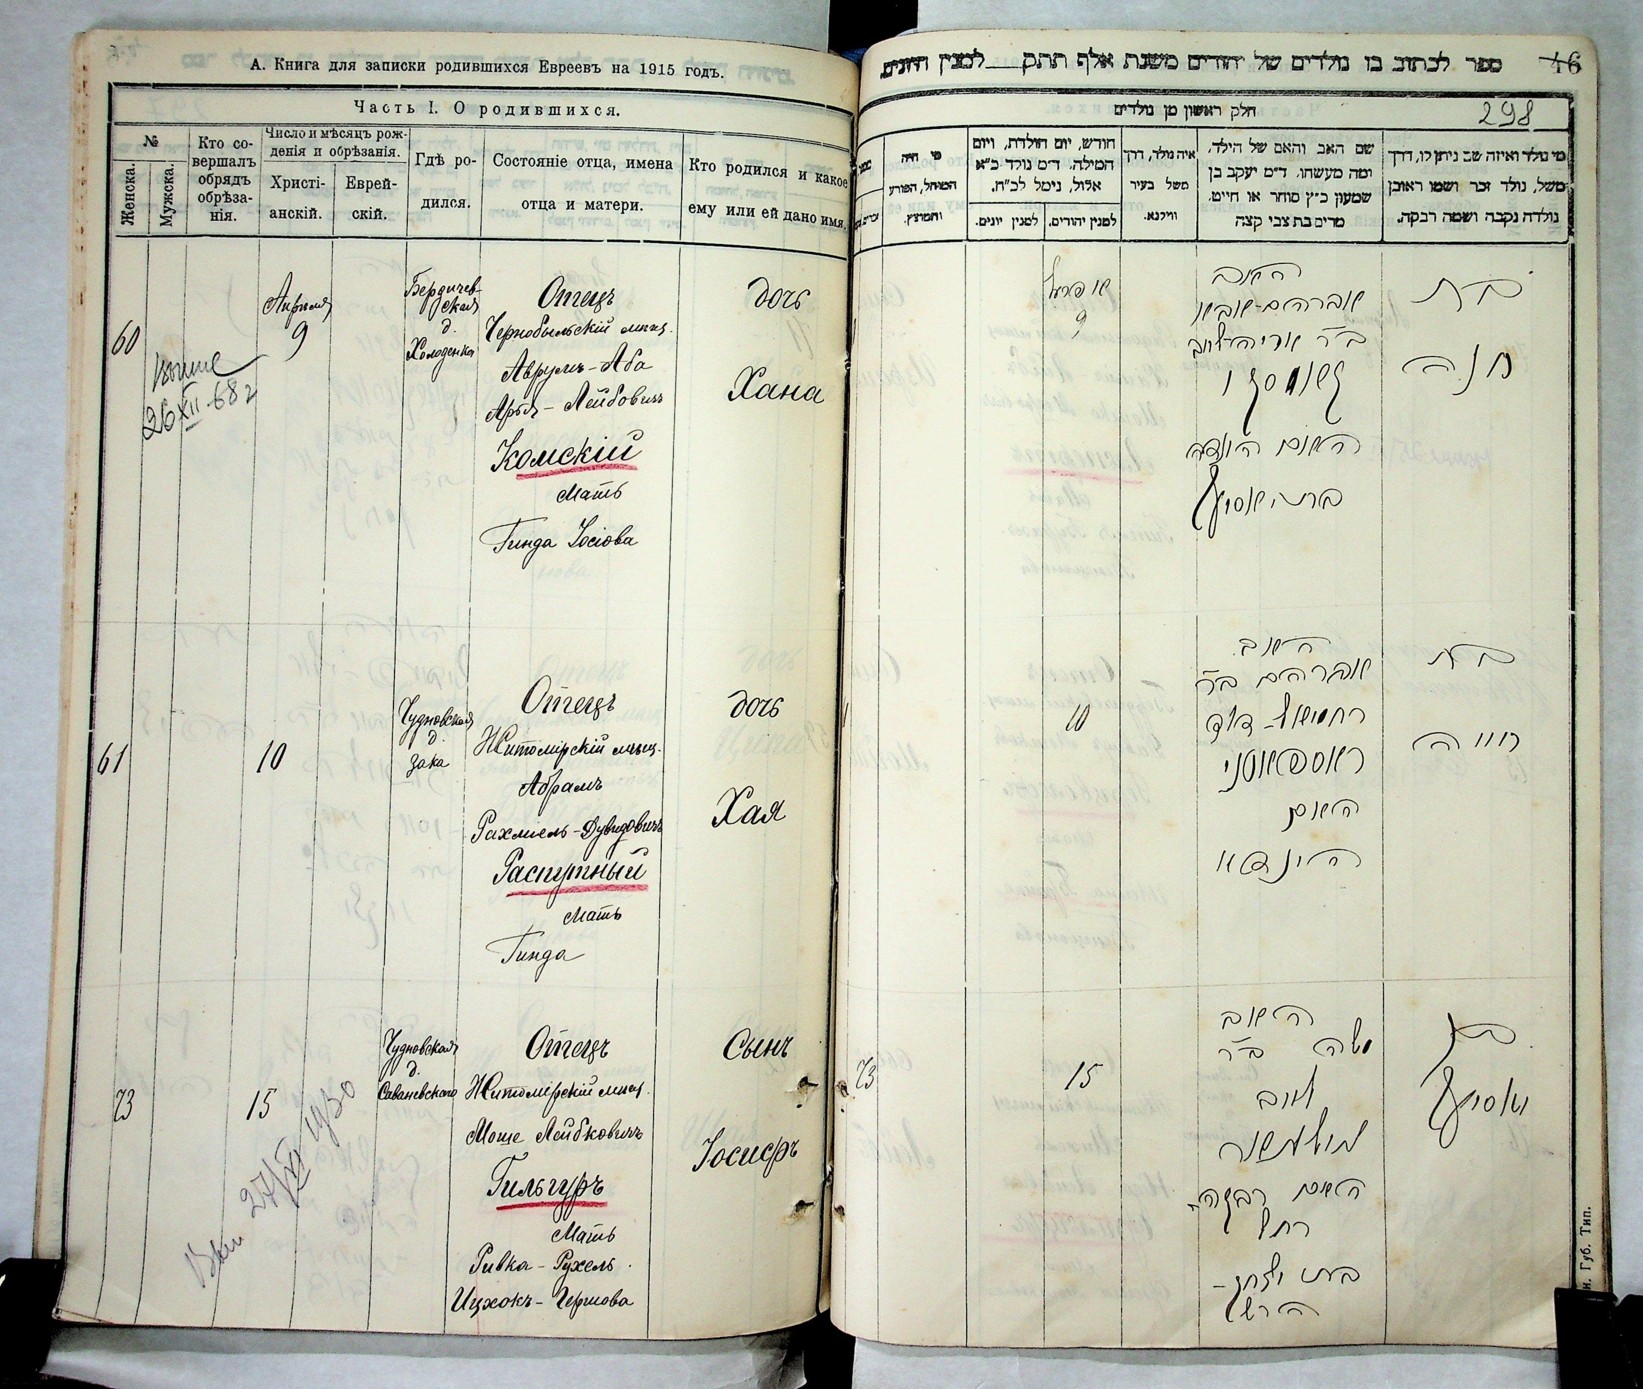 А. Книга для записки родившихся Евреевъ на 1915 годъ.
Часть I. О родившихся.
№
Женска.
Мужска.
Кто со-
вершалъ
обрядъ
обрѣза-
нія.
Число и мѣсяцъ рож-
денія и обрѣзанія.
Христі-
анскій.
Еврей-
скій.
Гдѣ ро-
дился.
Состояніе отца, имена
отца и матери.
Кто родился и какое
ему или ей дано имя.
60
Апрѣля
9
Бердичев-
ская
д.
Холоденка
Отецъ
Чернобыльскій мѣщ.
Аврумъ-Аба
Арья-Лейбовичъ
Комскій
Мать
Гинда Іосіова
дочь
Хана
26 XII-682
61
10
Чудновская
д.
Зака
Отецъ
Житомірскій мѣщ.
Абрамъ
Рахмiель-Дувидовичъ
Распутный
Мать
Гинда
дочь
Хая
73
15
Чудновская
д.
Саваневскаго
Отецъ
Житомірскій мѣщ.
Моше Лейбковичъ
Гильгуръ
Мать
Ривка-Рухель
Ицхокъ-Гершова
Сынъ
Іосифъ
27/XI 1930
ספר לכתוב בו נולדים של יהודים משנת אלף תתק למנין היונים
46
חלק ראשון מן נולדים
298
מי נולד ואיזה שם ניתן לו, דרך
משל, נולד זכר ושמו ראובן
נולדה נקבה ושמה רבקה.
שם האב והאם של הילד,
ומה מעשהו. ד״מ יעקב בן
שמעון כ״ץ סוחר או חייט.
מרים בת צבי קצה
איה נולד, דרך
משל בעיר
ווילנא.
חודש, יום הולדת, ויום
המילה. ד״מ נולד כ״א
אלול, נימל לכ״ח.
למנין יהודים.
למנין יונים.
מי היה
המוהל, הפורע
והמוצץ.
בת
חנה
האב
אברהם-אבא
ב״ר אריה ליב
9
בת
חיה
האב
אברהם ב״ר
האם
הינדא
10
בן
יאסיף
האב
משה ב״ר
ליב
האם רבקה
רחל
15
73
Губ. Тип.